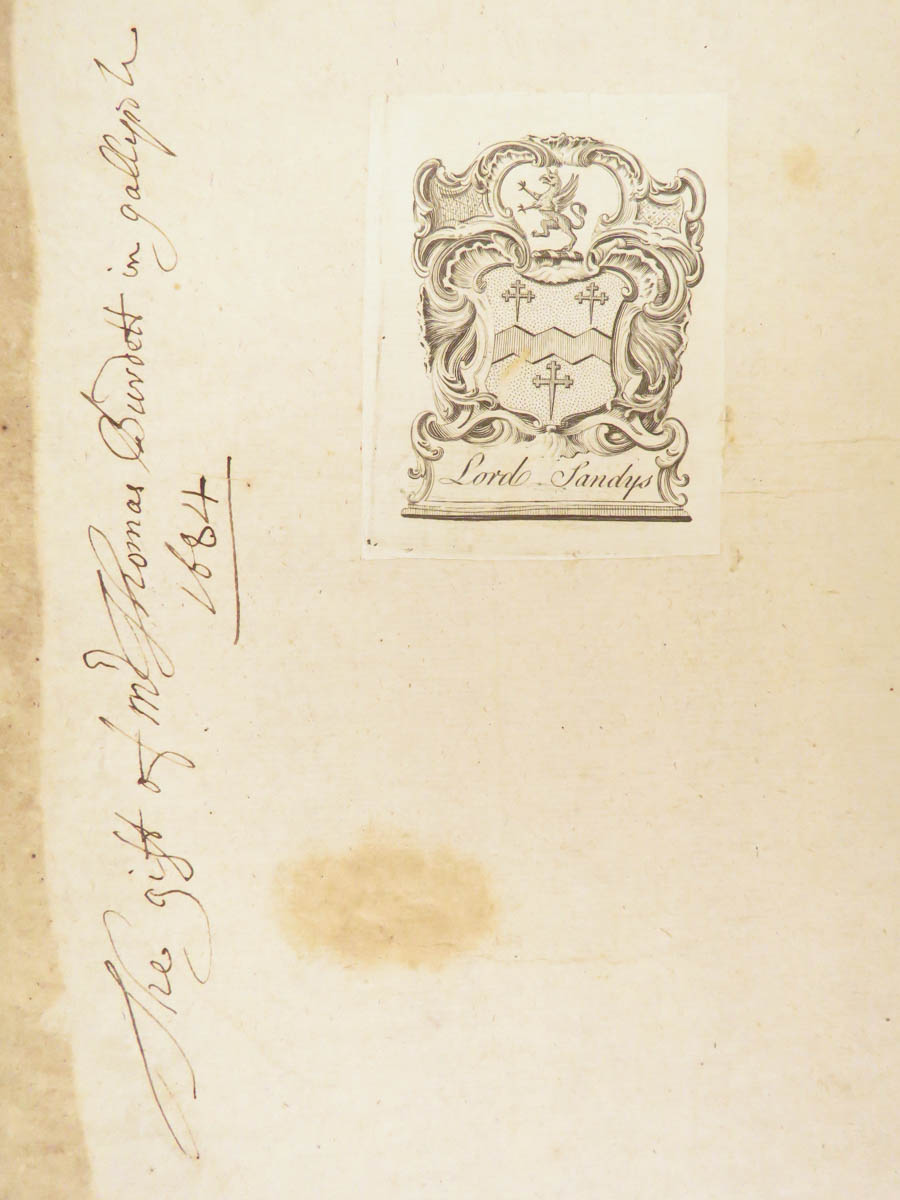 The gift of mr Thomas Burdett in gallypoli
1684
Lord Sandys